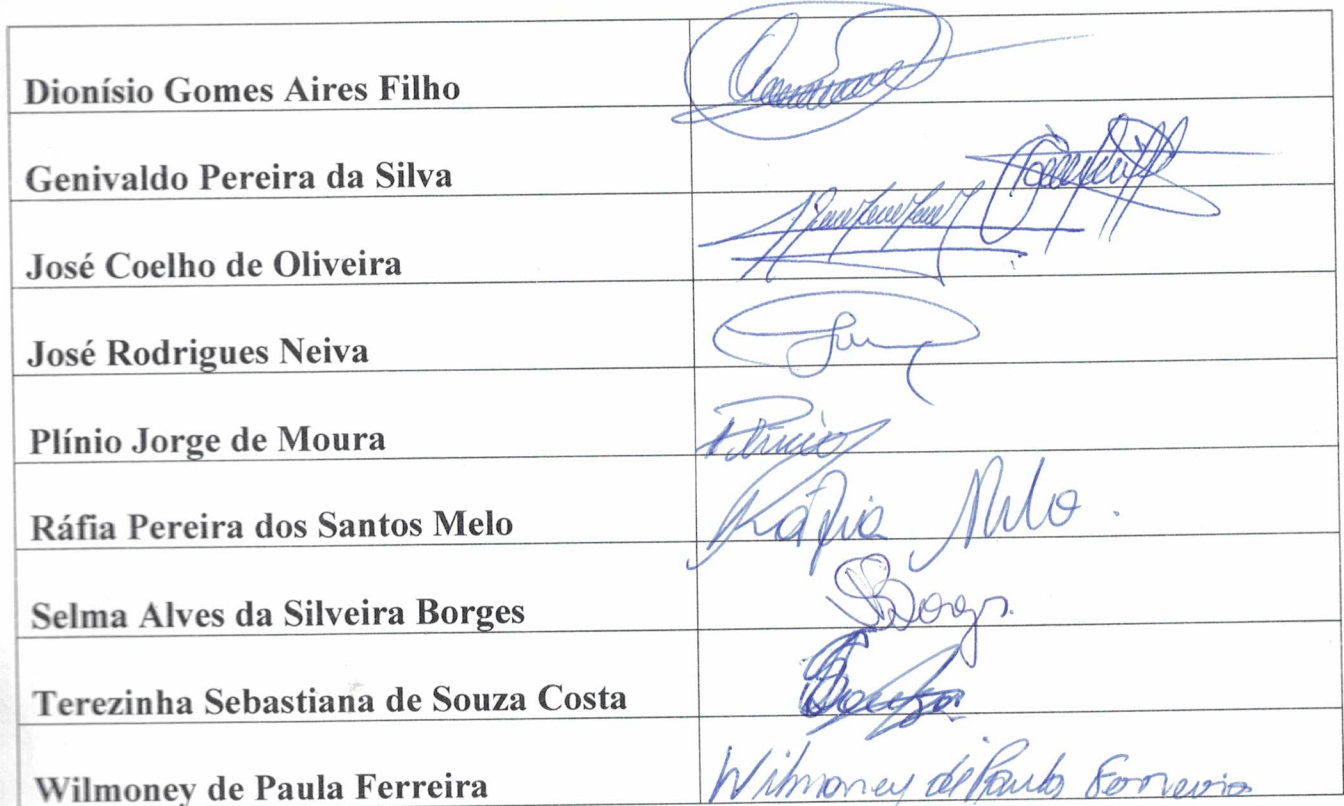 Dionísio Gomes Aires Filho
Genivaldo Pereira da Silva
José Coelho de Oliveira
José Rodrigues Neiva
Plínio Jorge de Moura Plínio
Ráfia Pereira dos Santos Melo Ráfia Melo.
Selma Alves da Silveira Borges SBorges
Terezinha Sebastiana de Souza Costa Souza
Wilmoney de Paula Ferreira Wilmoney de Paula Ferreira